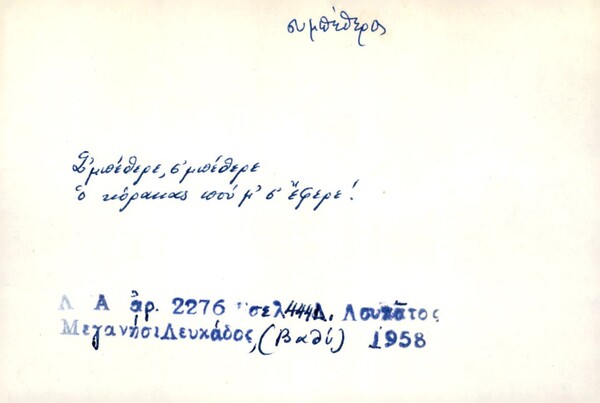 συμπέθερος
Σ'μπέθερε, σ'μπέθερε
ὁ κόρακας ποὺ μ' σ' ἔφερε!
Λ Α ἀρ. 2276 σελ 444 Δ. Λουκᾶτος
Μεγανήσι Λευκάδος, (Βαθύ) 1958